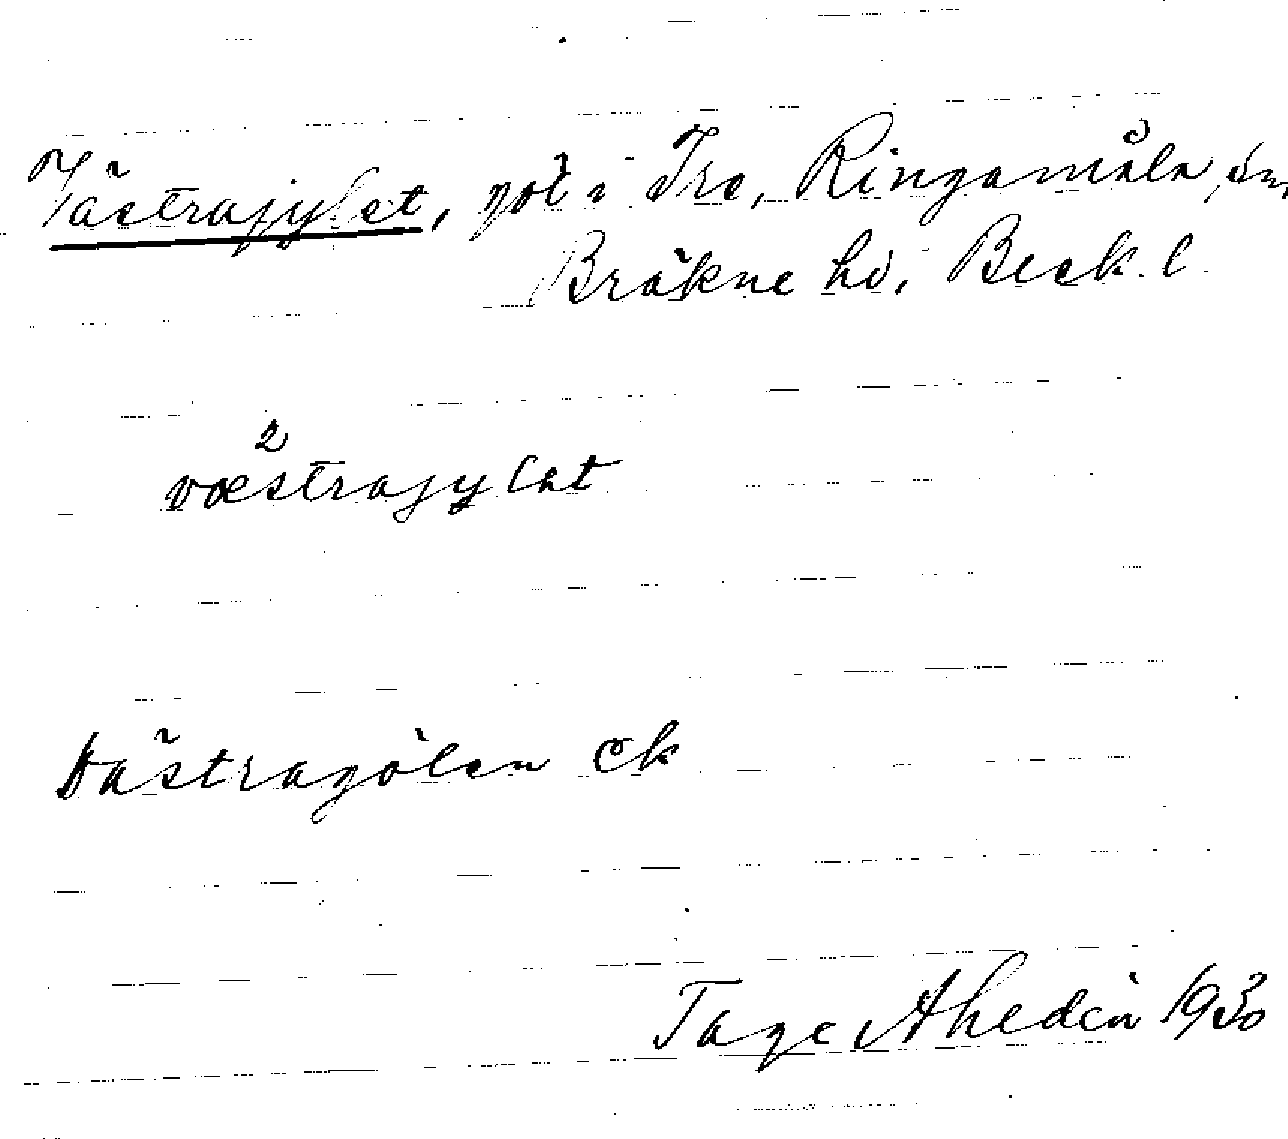 Västragylet, göl i Tre, Ringamåla sn,
Bräkne hd, Bleck. l.
2
væstragylat
Västragölen ek
Tage Ahedén 1930